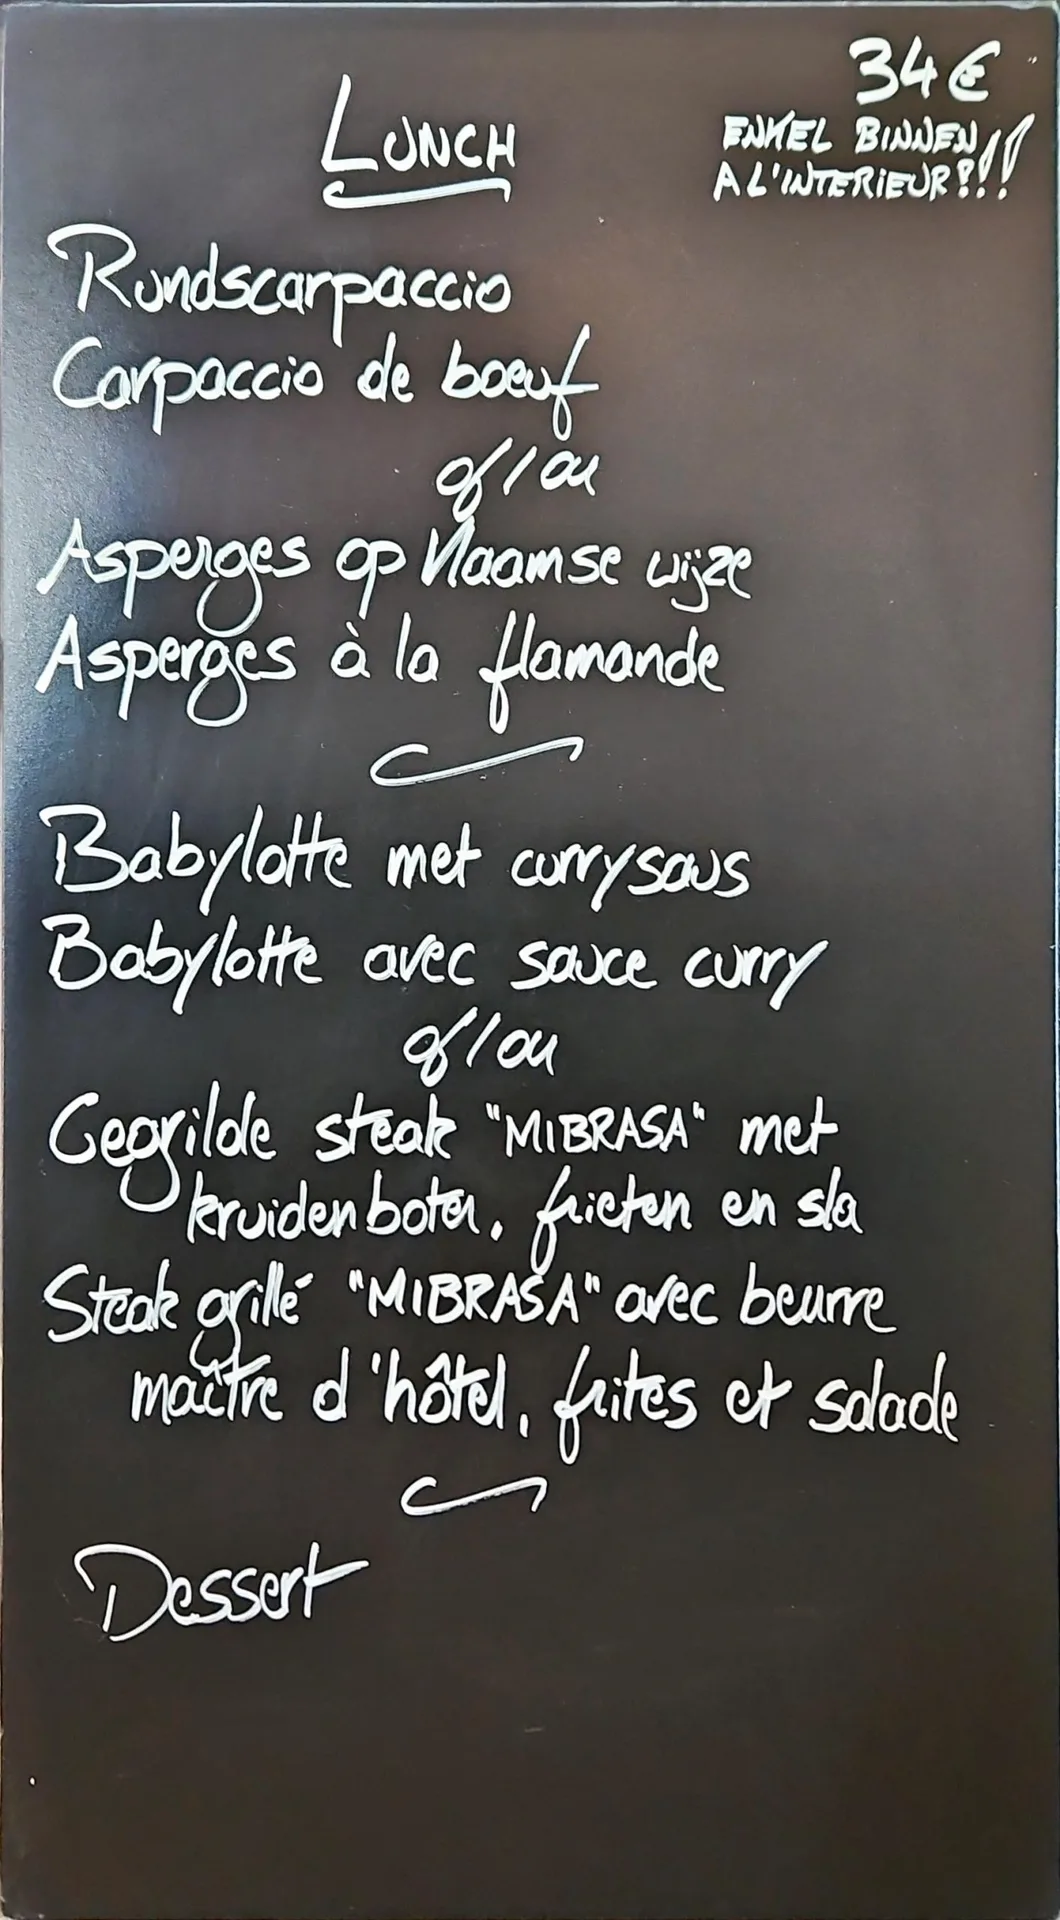 34€
LUNCH
ENKEL BINNEN!!
A L'INTERIEUR!!!
Rundscarpaccio
Carpaccio de boeuf
of/ou
Asperges op Vlaamse wijze
Asperges à la flamande
Babylotte met currysaus
Babylotte avec sauce curry
of/ou
Gegrilde steak "MIBRASA" met
kruidenboter, frieten en sla
Steak grillé "MIBRASA" avec beurre
maître d'hôtel, frites et salade
Dessert